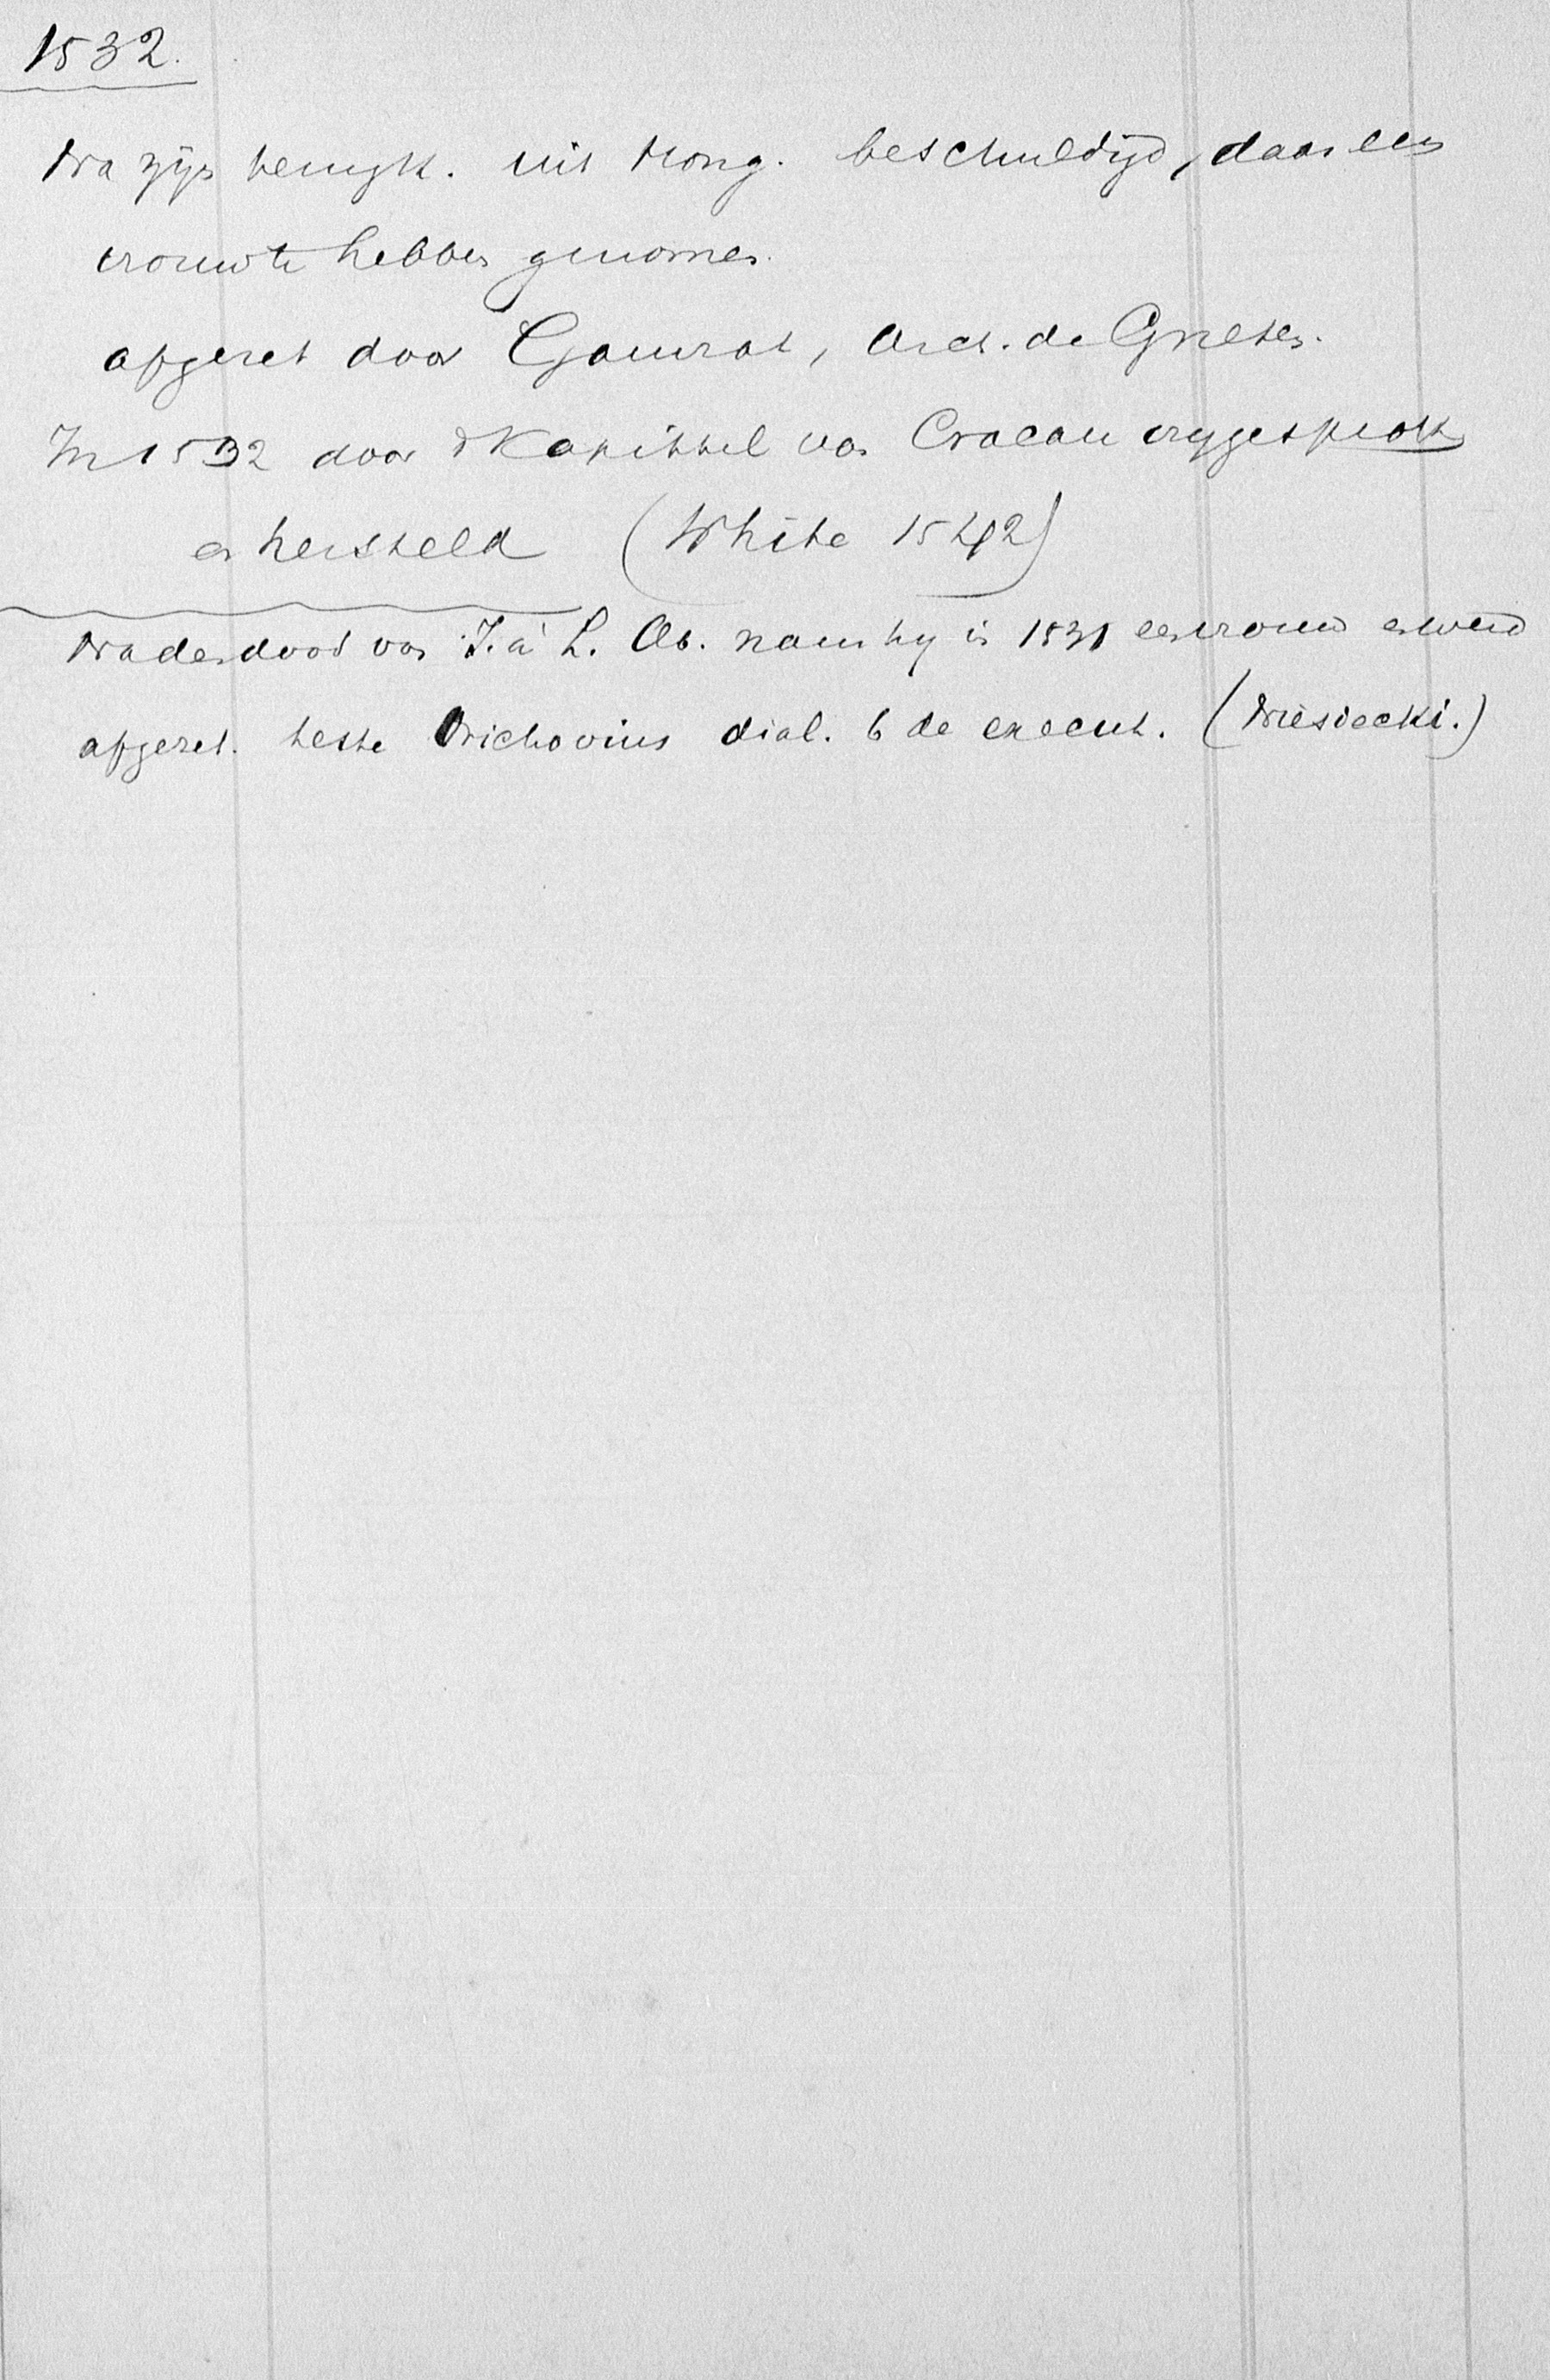 1532.
Na zijn terugk. uit Hong. beschuldigd, daar een
vrouw te hebben genomen.
afgezet door Gamrat, Arch. de Gnesen.
In 1532 door 't Kapittel van Cracau vrijgesprok
en hersteld (White 1542)
Na den dood van J. à L. Ab. nam hy in 1531 een vrouw en werd
afgezet. teste Orichovius dial. 6 de execut. (Niesiecki.)